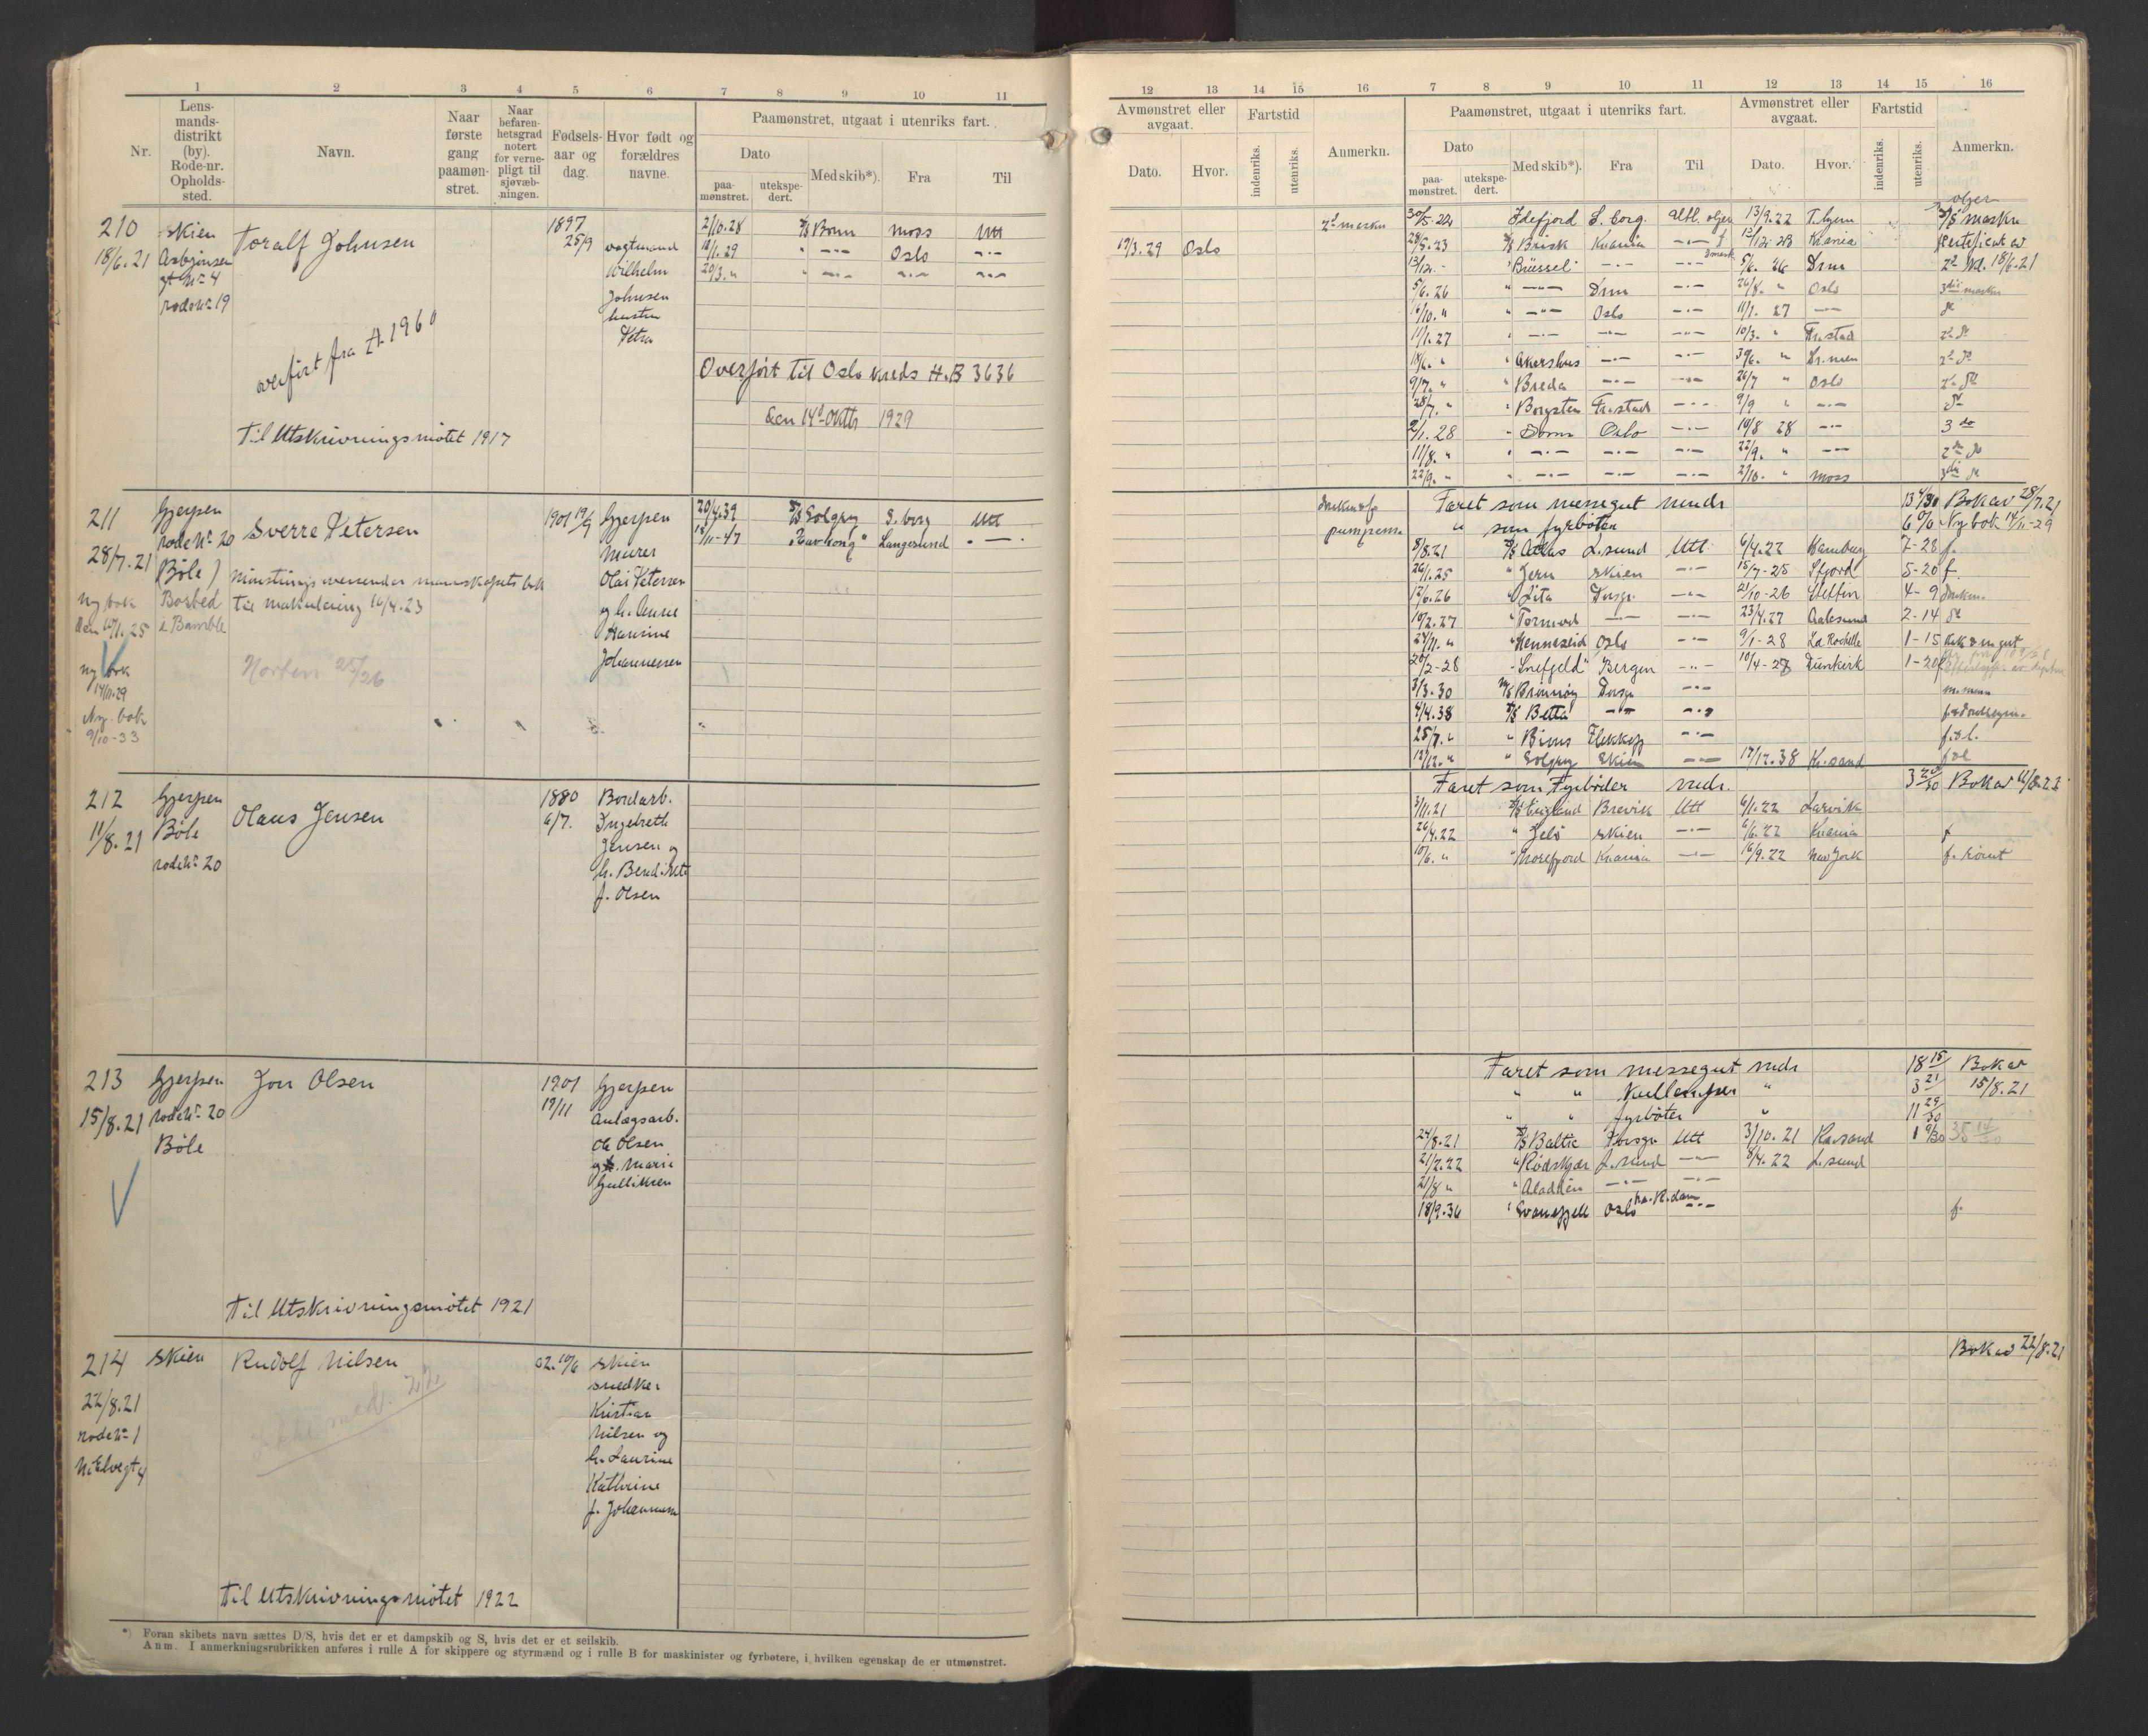 1 2 3 4 5 6 7 8 9 10 11
Nr.
Lens-
mands-
distrikt
(by).
Rode-nr.
Opholds-
sted.
Navn.
Naar
første
gang
paamøn-
stret.
Naar
befaren-
hetsgrad
notert
for verne-
pligt til
sjøvæb-
ningen.
Fødsels-
aar og
dag.
Hvor født og
forældres
navne.
Paamønstret, utgaat i utenriks fart.
Dato
paa-
mønstret.
utekspe-
dert.
Med skib*).
Fra
Til
210 Skien Toralf Johnsen 1897 2/10.28 D/S Bonn Moss Utl
18/6.21 Asbjønsen 25/9 vagtmand 18/1.29 " —"— Oslo —"—
gt No 4 Wilhelm 20/3. " " —"— —"— —"—
rode No 19 Johnsen
hustru
Petra
overført fra A 1960
Overført til Oslo Kreds H.B 3636
den 14d Oktbr 1929
Til Utskrivningsmötet 1917
211 Gjerpen Sverre Petersen 1901 19/9 Gjerpen 20/4.39 D/S Solgry S.borg Utl
28/7.21 rode No 20 Murer 18/11-47 Langesund
Bøle) Olai Petersen
Til makulering 16/4.23
ny bok
den 10/1.25
i Bamble
og h. Anne
Johannessen
Horten 25/26
ny bok
14/11.29
Ny. bok
9/10-33
212 Gjerpen Olaus Jensen 1880 Bordarb.
11/8.21 Bøle 6/7. Ingebreth
rode No 20 Jensen og
f. Olsen
213 Gjerpen Jon Olsen 1901 Gjerpen
15/8.21 rode No 20 19/11 Anlægsarb.
Bøle Ole Olsen
og h. Marie
Gulliksen
Til Utskrivningsmötet 1921
214 Skien Rudolf Nilsen 02. 10/6 Skien
22/8.21 snedker
rode No 1 Kristian
Nilsen og
h. Laurine
Kathrine
f. Johannesen
Til Utskrivningsmötet 1922
*) Foran skibets navn sættes D/S, hvis det er et dampskib og S, hvis det er et seilskib.
Anm. I anmerkningsrubrikken anføres i rulle A for skippere og styrmænd og i rulle B for maskinister og fyrbøtere, i hvilken egenskap de er utmønstret.
12 13 14 15 16 7 8 9 10 11 12 13 14 15 16
Avmønstret eller
avgaat.
Dato.
Hvor.
Fartstid
indenriks.
utenriks.
Anmerkn.
Paamønstret, utgaat i utenriks fart.
Dato
paa-
mønstret.
utekspe-
dert.
Med skib*).
Fra
Til
Avmønstret eller
avgaat.
Dato.
Hvor.
Fartstid
indenriks.
utenriks.
Anmerkn.
2d maskn 30/5-22 Idefjord S.borg. Utl. 13/9.22
19/3.29 Oslo 28/5.23 D/S Brisk Krania —"— 12/12.23 Krania sertifikat av
13/12. - " Brüssel —"— —"— 5/6.26 Drm 2d kl. 18/6.21
5/6.26 " —"— Drm —"— 26/8. " Oslo 3die maskn
16/10. " " —"— Oslo —"— 11/1.27 —"—
11/1.27 " —"— —"— —"— 10/3. " Fr.stad
18/6. " " Akershus —"— —"— Dr.men
9/7. " " Breda —"— —"— 26/7 " Oslo
28/7. " " Borgsten Fr.stad —"— 9/9 " —"—
2/1.28 " Bonn Oslo —"— 10/8 28 —"— 3 do
11/8. " " —"— —"— —"— 22/9. " —"—
22/9. " " —"— —"— —"— 2/10. " Moss
Faret som messegut rundr 13 4/30 Bok av 28/7.21
" som fyrbøter Ny bok 14/11-29
8/8.21 D/S Atlas L.sund Utl 6/4.22 Hamburg 7-28 f.
26/1.25 " Jern Skien —"— 15/7-25 5-20 f.
12/6.26 " Lita Porsgr. —"— 21/10-26 Stettin 4-9
10/2.27 " Tormod —"— —"— 23/4.27 Aalesund 2-14
24/11. " " Henneseid Oslo —"— 9/1-28 La Rochelle 1-15
20/2-28 " Snefjeld Bergen —"— 10/4-28 Dünkirk 1-20
3/3.30 Brönnöy Porsgr —"—
4/4.38 D/S Betta —"— —"—
25/7. " " Bims —"—
12/12. " " Solgry Skien —"— 17/12.38 Kr.sand
Faret som Fyrbøder rundr. 3 20/30 Bok av 11/8.21
3/11.21 D/S England Brevik Utl 6/1.22 Larvik
26/4.22 " Jelö Skien —"— 6/6.22 Krania f
10/6. " " Norefjord Krania —"— 16/9.22 New York
Faret som messegut rundr 18 15/ Bok av
" " Kullemper " 3 21 15/8.21
" " fyrbøter " 11 29/30
24/8.21 D/S Baltic Porsgr Utl 3/10.21 Kr.sand 1 9/30 35 14/30
21/2.22 " Rødskjær L.sund —"— 8/4.22 L.sund
21/8 " " Aladdin —"— —"—
18/9.36 Oslo —"— f.
Bok av 22/8.21